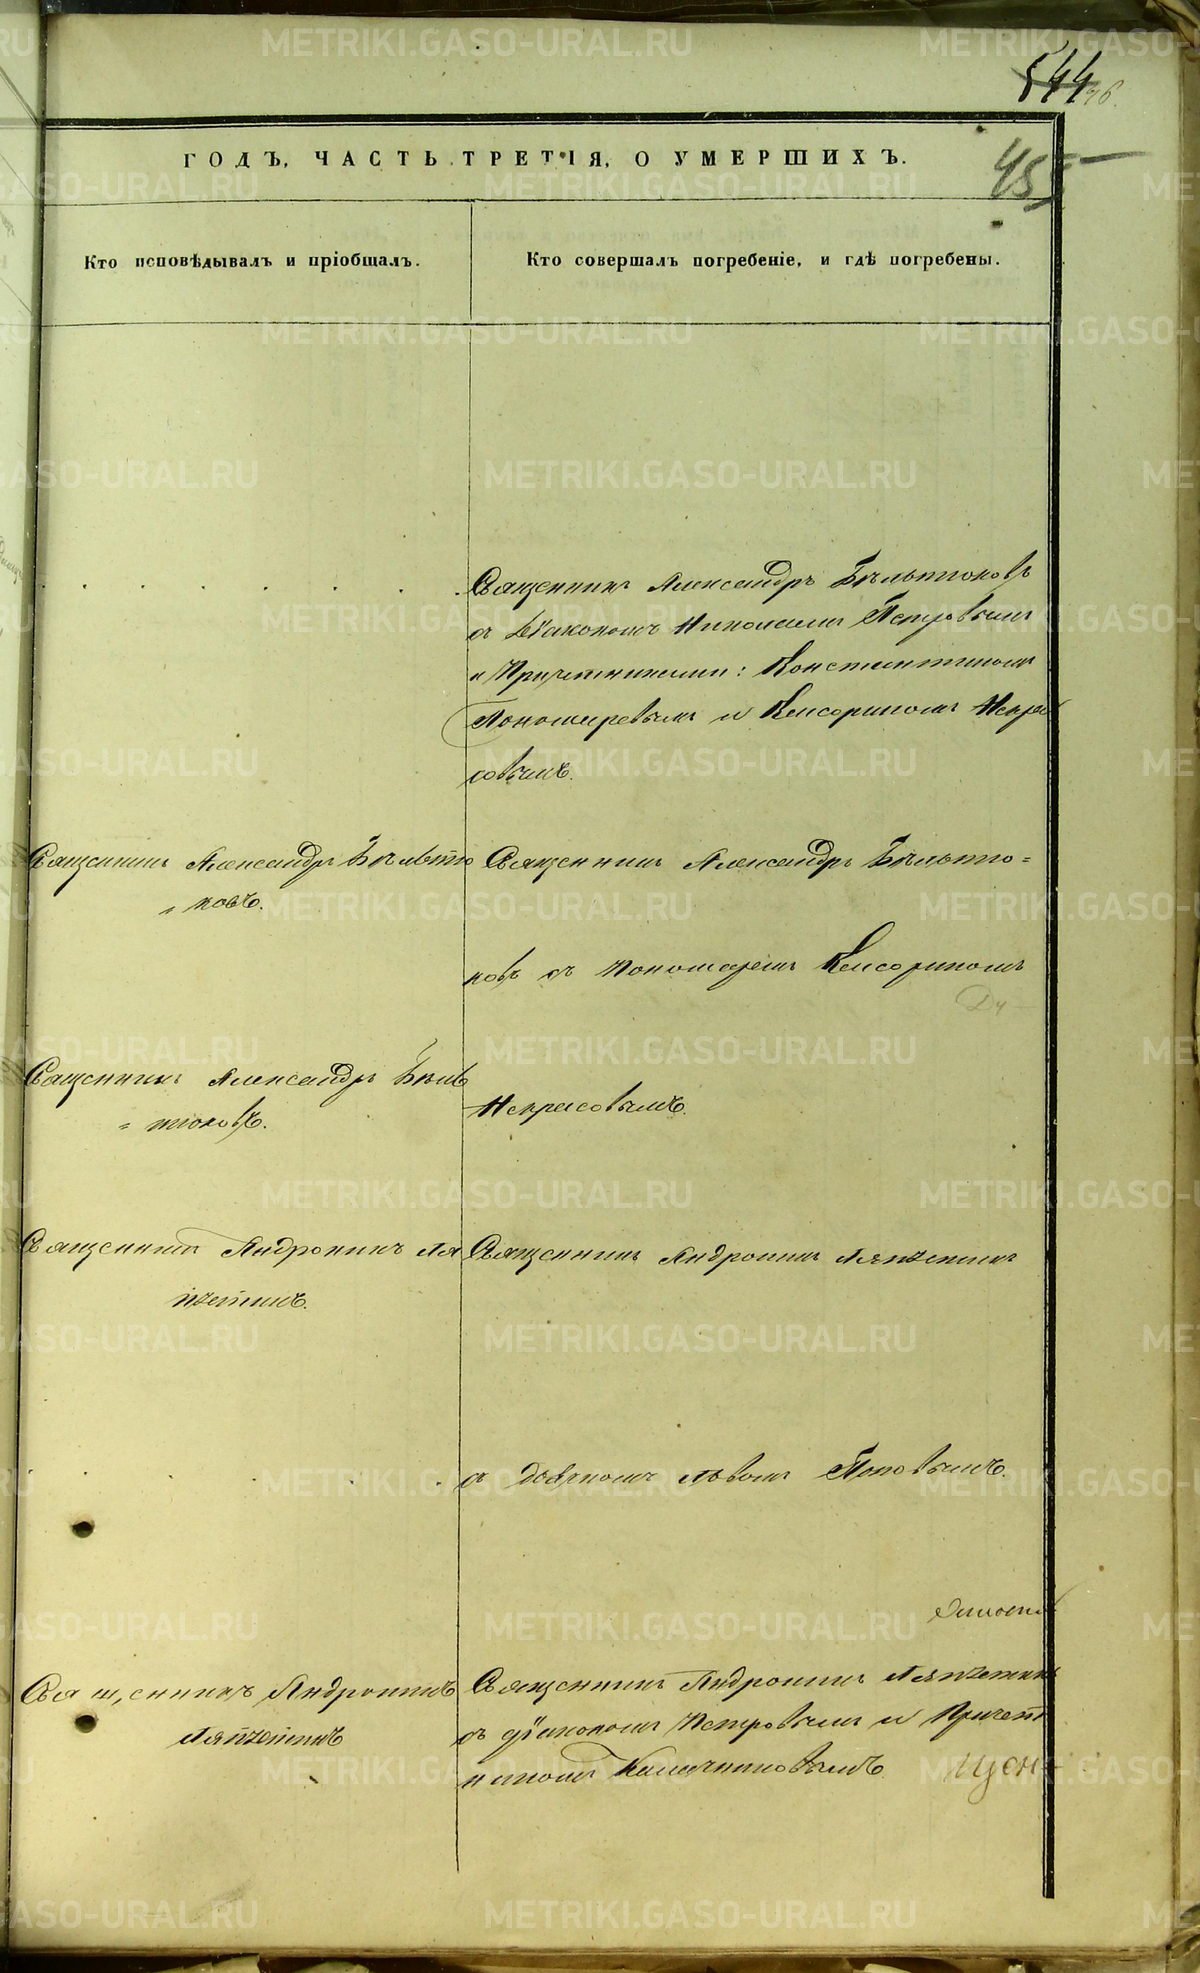 544
455
ГОДЪ, ЧАСТЬ ТРЕТІЯ, О УМЕРШИХЪ.
Кто исповѣдывалъ и пріобщалъ.
Кто совершалъ погребеніе, и гдѣ погребены.
Священникъ Александръ Бѣльтюковъ
съ Діакономъ Николаемъ Петровымъ
и Причетниками: Константиномъ
Пономаревымъ и Кенсориномъ Некра
совымъ.
Священникъ Александръ Бѣльтю
"ковъ.
Священникъ Александръ Бѣльтю=
ковъ съ Пономаремъ Кенсориномъ
Священникъ Александръ Бѣль
=тюковъ.
Некрасовымъ.
Священникъ Андроникъ Ля
пустинъ.
Священникъ Андроникъ
съ дьячкомъ Львомъ Поповымъ.
Священникъ Андроникъ
Священникъ Андроникъ
съ діакономъ Петровымъ и Причет
никомъ Калачниковымъ
METRIKI.GASO-URAL.RU